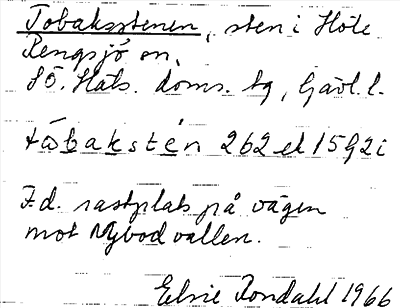 Tobaksstenen, sten i Höle
Rengsjö sn,
Sö. Häls. doms. tg, Gävl. l.
tåbakstén 262 ek 15 G2i
F.d. rastplats på vägen
mot Nybodvallen.
Elsie Rondahl 1966